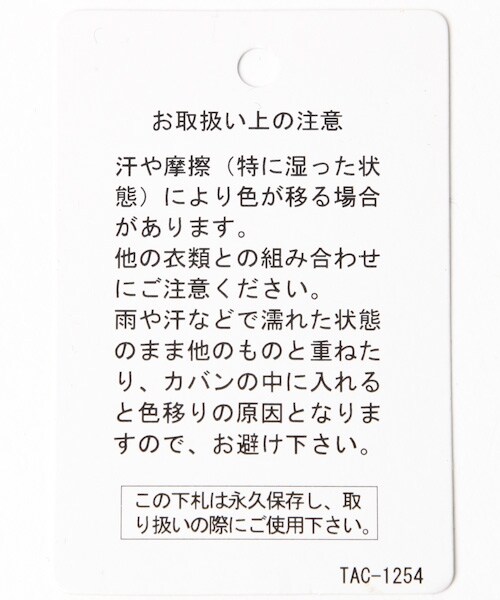 お取扱い上の注意
汗や摩擦（特に湿った状
態）により色が移る場合
があります。
他の衣類との組み合わせ
にご注意ください。
雨や汗などで濡れた状態
のまま他のものと重ねた
り、カバンの中に入れる
と色移りの原因となりま
すので、お避け下さい。
この下札は永久保存し、取
り扱いの際にご使用下さい。
TAC-1254